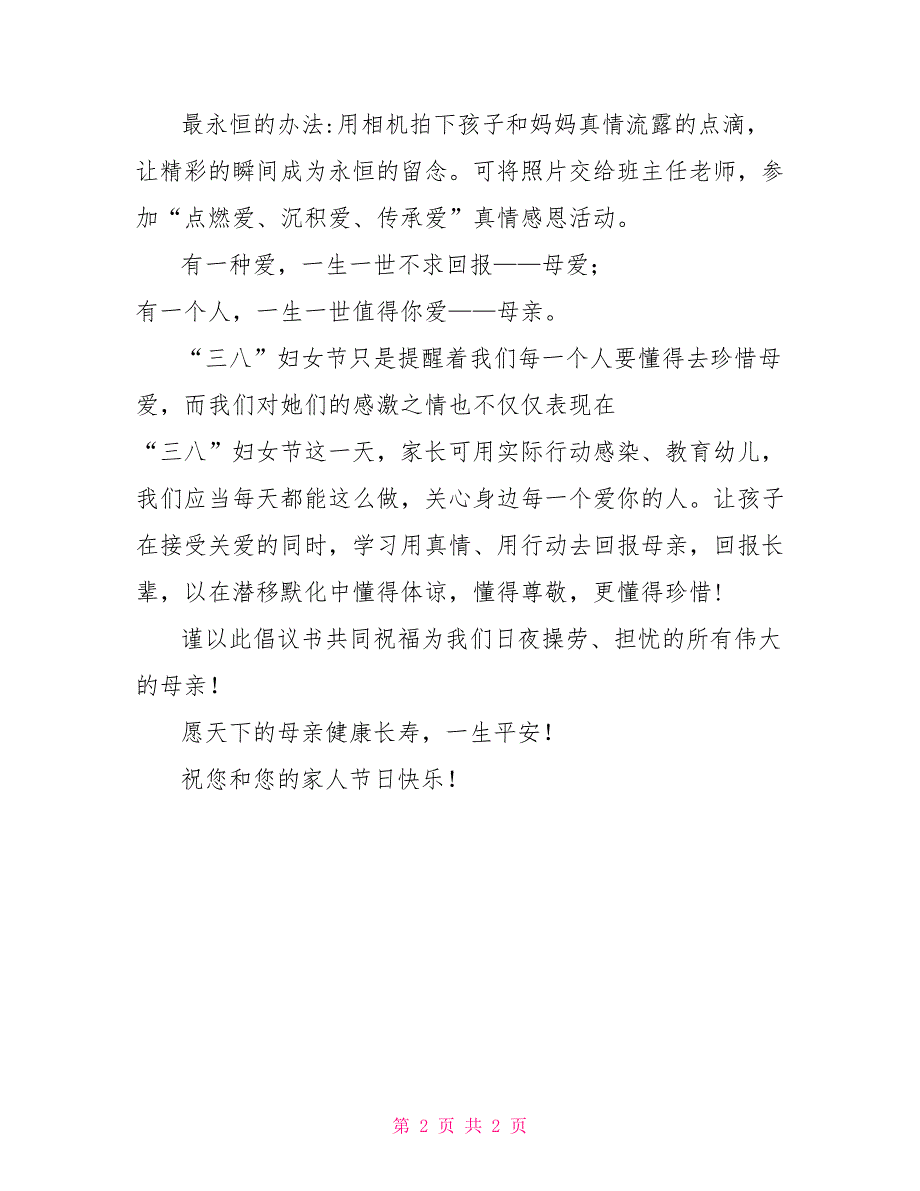 最永恒的办法:用相机拍下孩子和妈妈真情流露的点滴，
让精彩的瞬间成为永恒的留念。可将照片交给班主任老师，参
加“点燃爱、沉积爱、传承爱”真情感恩活动。
有一种爱，一生一世不求回报——母爱；
有一个人，一生一世值得你爱——母亲。
“三八”妇女节只是提醒着我们每一个人要懂得去珍惜母
爱，而我们对她们的感激之情也不仅仅表现在
“三八”妇女节这一天，家长可用实际行动感染、教育幼儿，
我们应当每天都能这么做，关心身边每一个爱你的人。让孩子
在接受关爱的同时，学习用真情、用行动去回报母亲，回报长
辈，以在潜移默化中懂得体谅，懂得尊敬，更懂得珍惜!
谨以此倡议书共同祝福为我们日夜操劳、担忧的所有伟大
的母亲！
愿天下的母亲健康长寿，一生平安！
祝您和您的家人节日快乐！
第 2 页 共 2 页